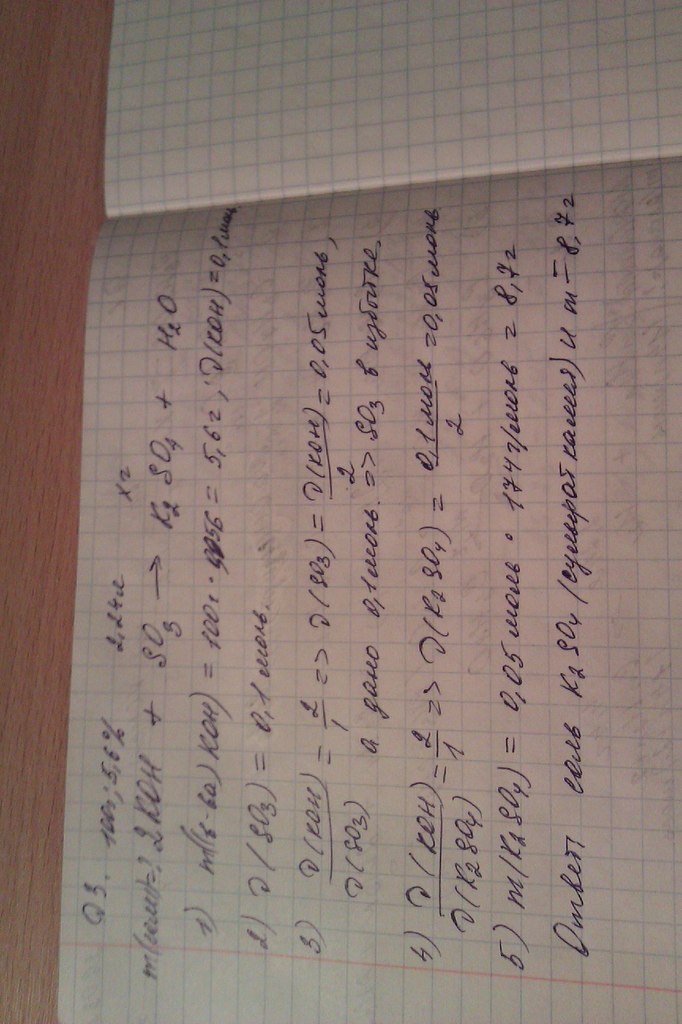 Q3. 100г; 5,6% 2,24л xг
m(соли)=? 2KOH + SO3 → K2SO4 + H2O
1) m(в-ва) KOH) = 100г · 0,056 = 5,6г; ν(KOH) = 0,1 моль
2) ν(SO3) = 0,1 моль.
3) ν(KOH) / ν(SO3) = 2/1 => ν(SO3) = ν(KOH)/2 = 0,05 моль,
а дано 0,1 моль. => SO3 в избытке.
4) ν(KOH) / ν(K2SO4) = 2/1 => ν(K2SO4) = 0,1 моль/2 = 0,05 моль
5) m(K2SO4) = 0,05 моль · 174 г/моль = 8,7г
Ответ: соль K2SO4 (сульфат калия) и m = 8,7г